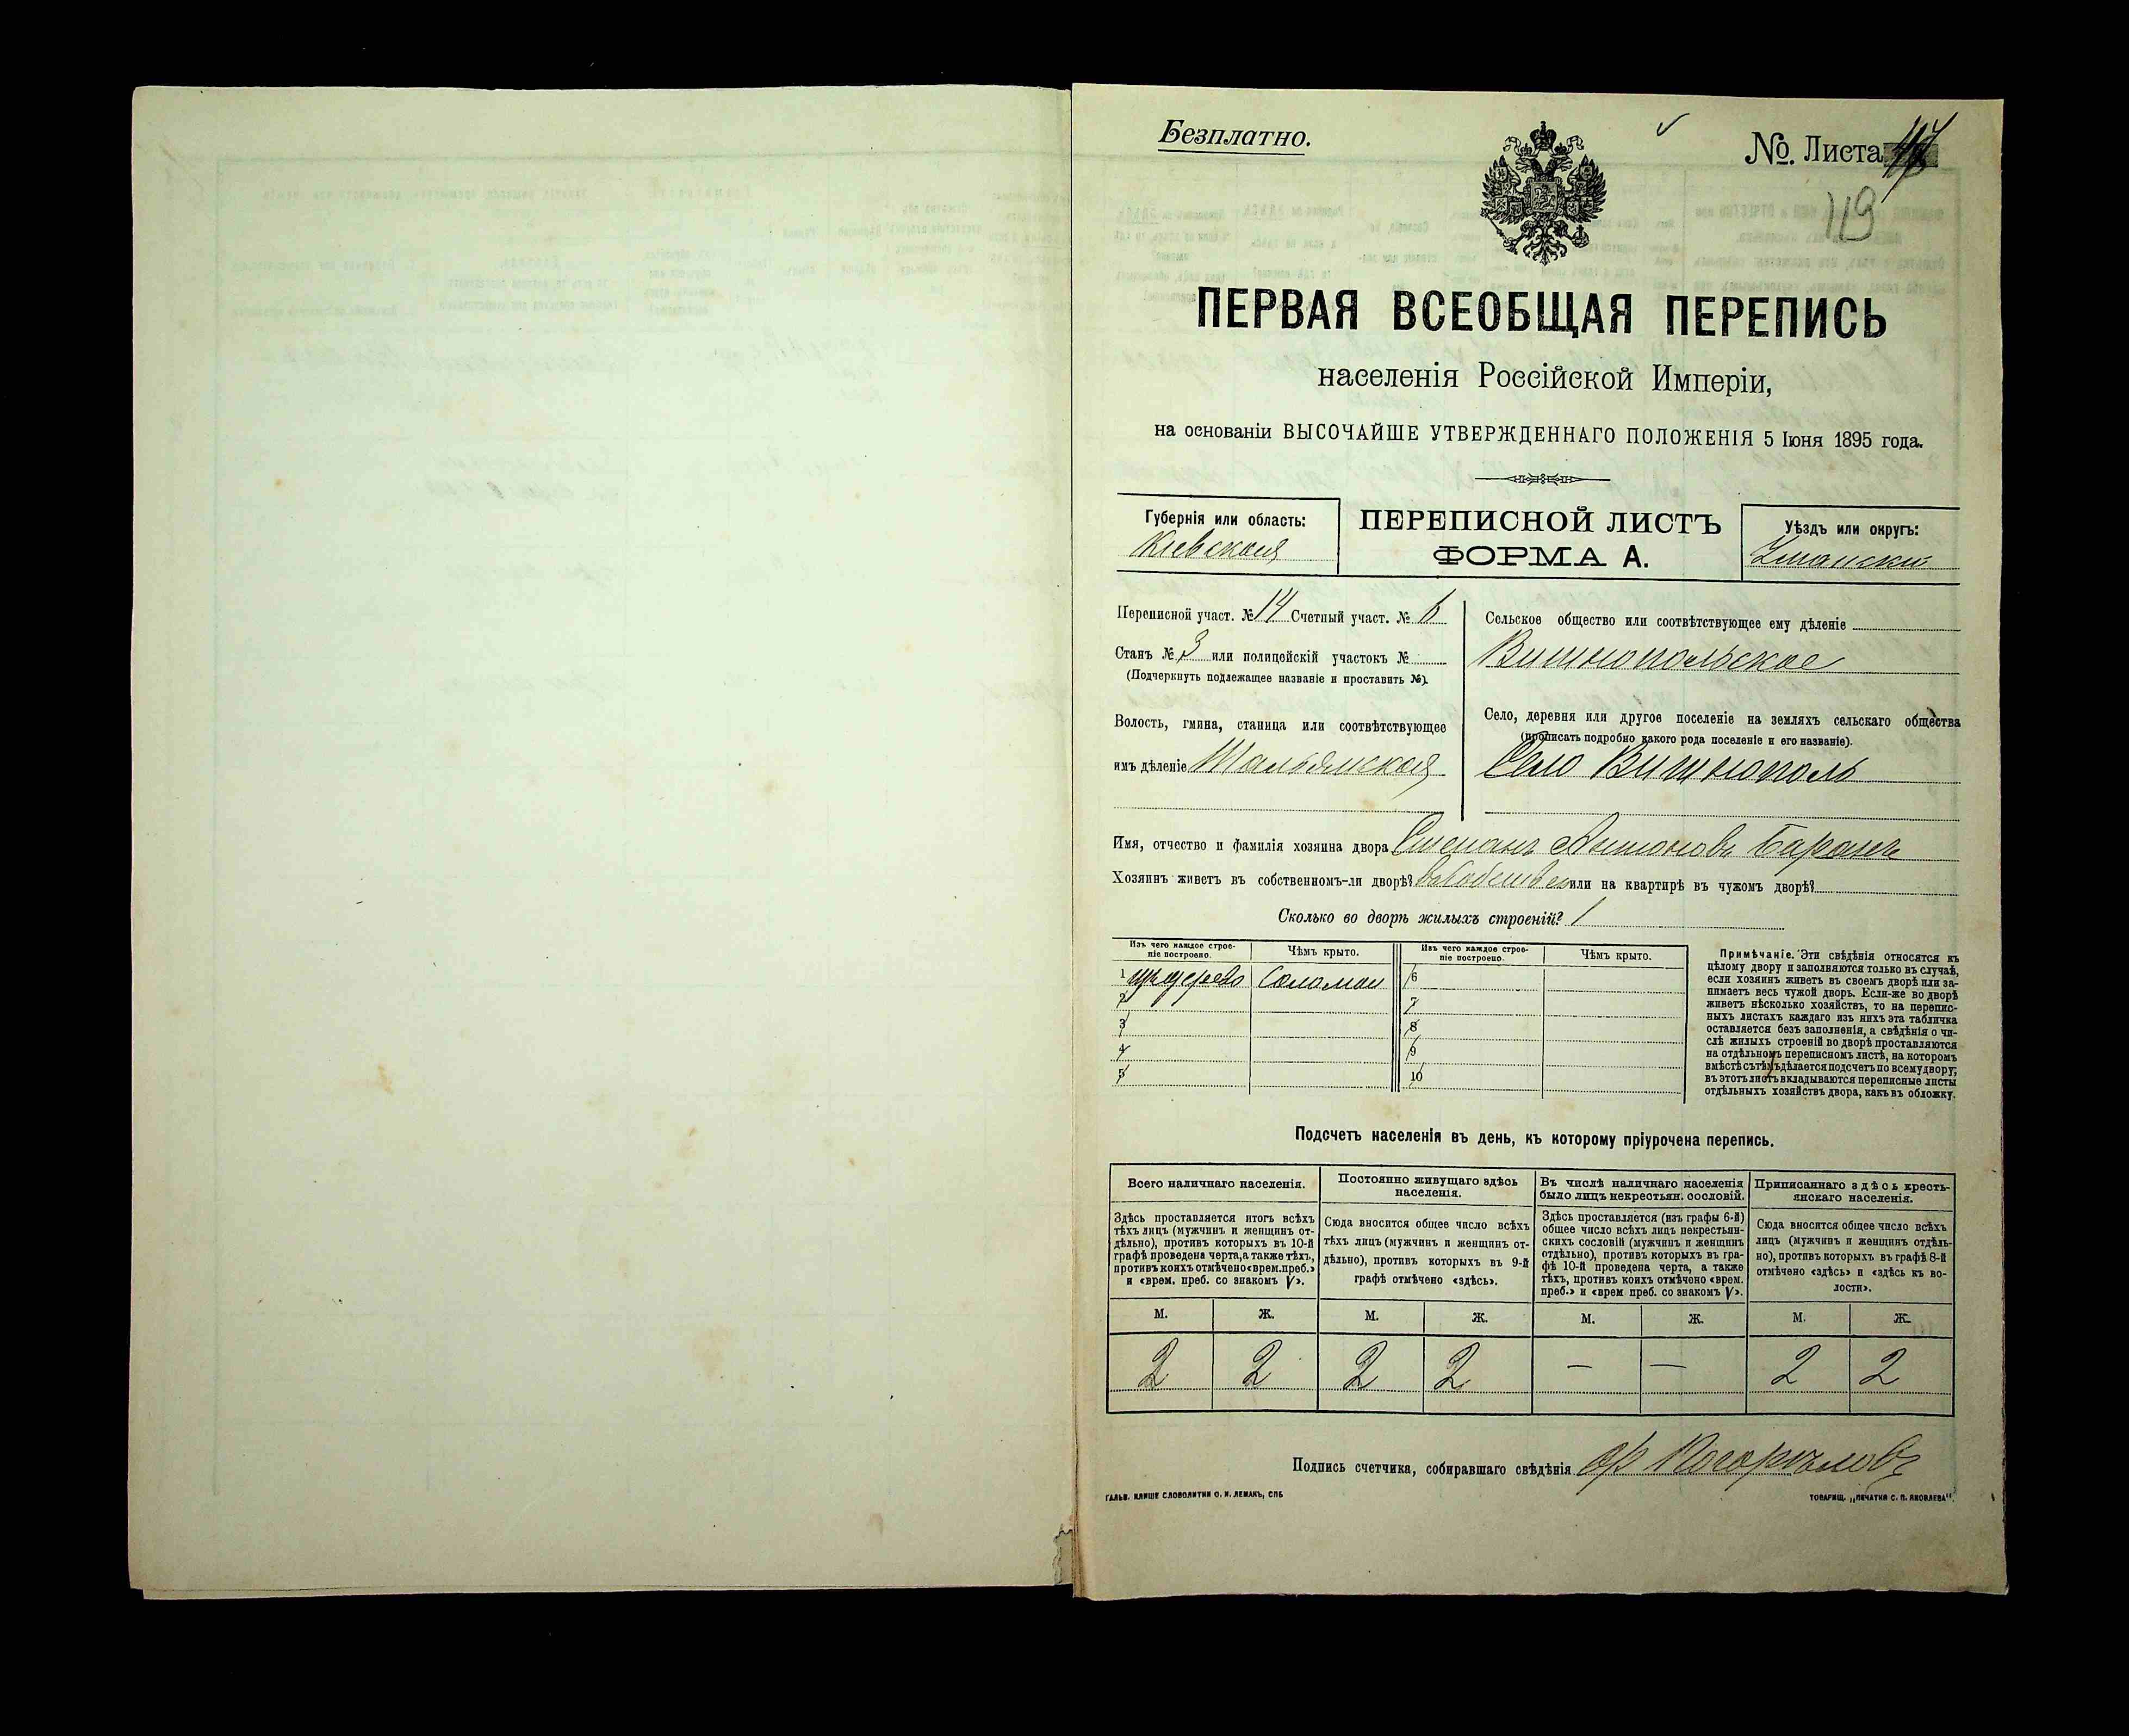 Безплатно.
№. Листа
119
ПЕРВАЯ ВСЕОБЩАЯ ПЕРЕПИСЬ
населенія Россійской Имперіи,
на основаніи ВЫСОЧАЙШЕ УТВЕРЖДЕННАГО ПОЛОЖЕНІЯ 5 Іюня 1895 года.
Губернія или область:
Кіевская
ПЕРЕПИСНОЙ ЛИСТЪ
ФОРМА А.
Уѣздъ или округъ:
Уманскій
Переписной участ. № 14 Счетный участ. № 6
Станъ № 3 или полицейскій участокъ №
(Подчеркнуть подлежащее названіе и проставить №).
Волость, гмина, станица или соотвѣтствующее
имъ дѣленіе
Сельское общество или соотвѣтствующее ему дѣленіе
Вишнопольское
Село, деревня или другое поселеніе на земляхъ сельскаго общества
(прописать подробно какого рода поселеніе и его названіе).
Село Вишнополь
Имя, отчество и фамилія хозяина двора Степанъ Антоновъ Баранъ
Хозяинъ живетъ въ собственномъ-ли дворѣ? или на квартирѣ въ чужомъ дворѣ?
Сколько во дворѣ жилыхъ строеній? 1
Изъ чего каждое строе-
ніе построено.
Чѣмъ крыто.
Изъ чего каждое строе-
ніе построено.
Чѣмъ крыто.
1 дерево Соломои 6
2 7
3 8
4 9
5 10
Примѣчаніе. Эти свѣдѣнія относятся къ
цѣлому двору и заполняются только въ случаѣ,
если хозяинъ живетъ въ своемъ дворѣ или за-
нимаетъ весь чужой дворъ. Если-же во дворѣ
живетъ нѣсколько хозяйствъ, то на перепис-
ныхъ листахъ каждаго изъ нихъ эта табличка
оставляется безъ заполненія, а свѣдѣнія о чи-
слѣ жилыхъ строеній во дворѣ проставляются
на отдѣльномъ переписномъ листѣ, на которомъ
вмѣстѣ съ тѣмъ дѣлается подсчетъ по всему двору;
въ этотъ листъ вкладываются переписные листы
отдѣльныхъ хозяйствъ двора, какъ въ обложку.
Подсчетъ населенія въ день, къ которому пріурочена перепись.
Всего наличнаго населенія.
Здѣсь проставляется итогъ всѣхъ
тѣхъ лицъ (мужчинъ и женщинъ от-
дѣльно), противъ которыхъ въ 10-й
графѣ проведена черта, а также тѣхъ,
противъ коихъ отмѣчено «врем. преб.»
и «врем. преб. со знакомъ V».
Постоянно живущаго здѣсь
населенія.
Сюда вносится общее число всѣхъ
тѣхъ лицъ (мужчинъ и женщинъ от-
дѣльно), противъ которыхъ въ 9-й
графѣ отмѣчено «здѣсь».
Въ числѣ наличнаго населенія
было лицъ некрестьян. сословій.
Здѣсь проставляется (изъ графы 6-й)
общее число всѣхъ лицъ некрестьян-
скихъ сословій (мужчинъ и женщинъ
отдѣльно), противъ которыхъ въ гра-
фѣ 10-й проведена черта, а также
тѣхъ, противъ коихъ отмѣчено «врем.
преб.» и «врем преб. со знакомъ V».
Приписаннаго здѣсь кресть-
янскаго населенія.
Сюда вносится общее число всѣхъ
лицъ (мужчинъ и женщинъ отдѣль-
но), противъ которыхъ въ графѣ 8-й
отмѣчено «здѣсь» и «здѣсь къ во-
лости».
М. Ж. М. Ж. М. Ж. М. Ж.
2 2 2 2 — — 2 2
Подпись счетчика, собиравшаго свѣдѣнія
ГАЛЬВ. КЛИШЕ СЛОВОЛИТНИ О. И. ЛЕМАНЪ, СПБ
ТОВАРИЩ. „ПЕЧАТНЯ С. П. ЯКОВЛЕВА“.